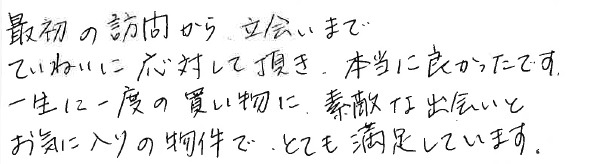 最初の訪問から、立会いまで
ていねいに応対して頂き、本当に良かったです。
一生に一度の買い物に、素敵な出会いと
お気に入りの物件で、とても満足しています。